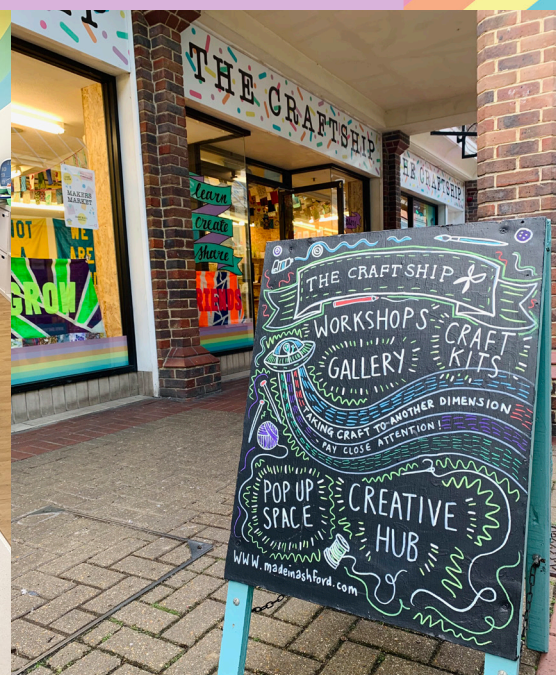 THE CRAFTSHIP
THE CRAFTSHIP
MAKERS
MARKET
learn
create
share
NOT
WE
ARE
GROW
THE CRAFTSHIP
WORKSHOPS
CRAFT
KITS
GALLERY
TAKING CRAFT TO ANOTHER DIMENSION
PAY CLOSE ATTENTION!
POP UP
SPACE
CREATIVE
HUB
www.madeinashford.com